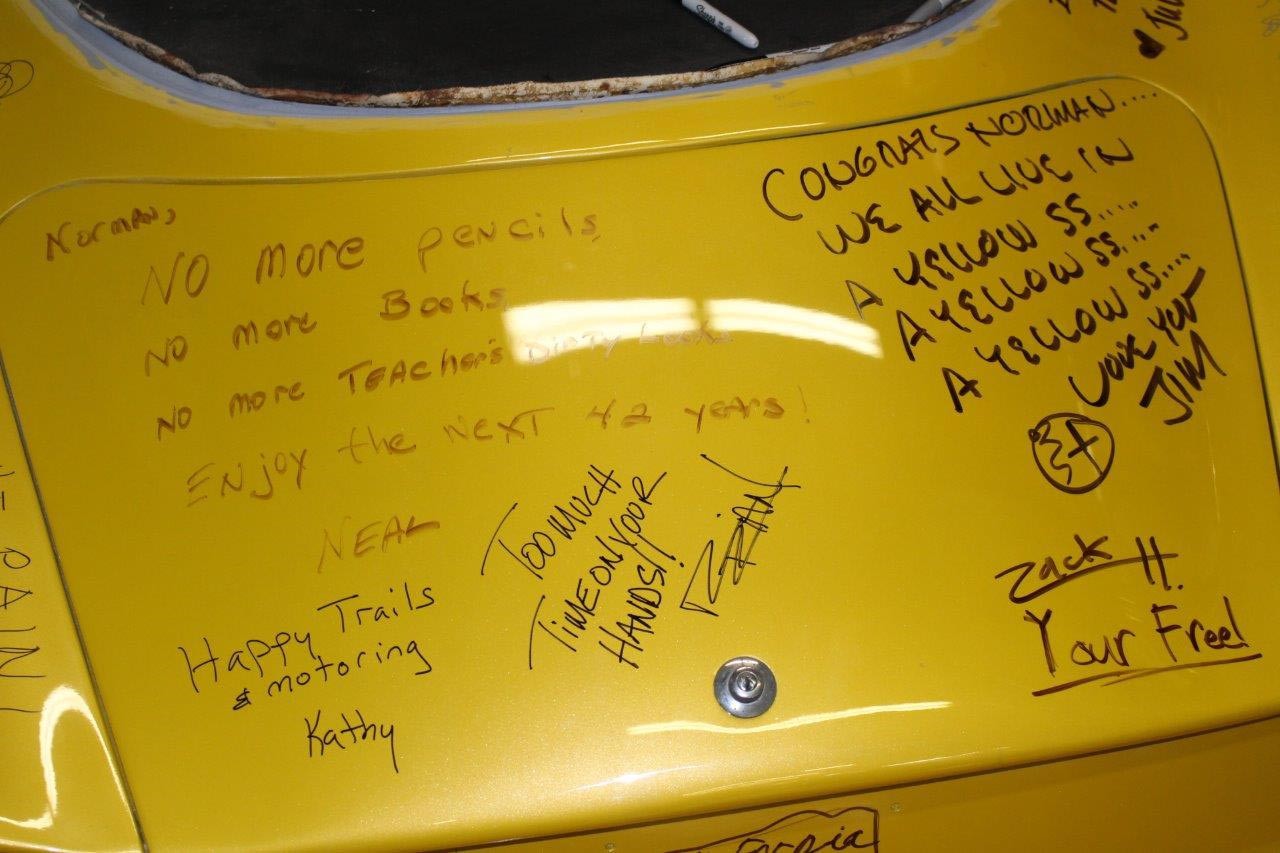 Norman,
NO more pencils
NO more Books
NO more TEACher's Dirty Looks
ENjoy the NEXT 42 years!
NEAL
CONGRATS NORMAN....
WE ALL LIVE IN
A YELLOW SS....
A YELLOW SS....
A YELLOW SS....
LOVE YOU
JIM
TOO MUCH
TIME ON YOUR
HANDS!!
BRIAN
Happy Trails
& motoring
Kathy
Zack H.
Your Free!
PAIN
Sharpie